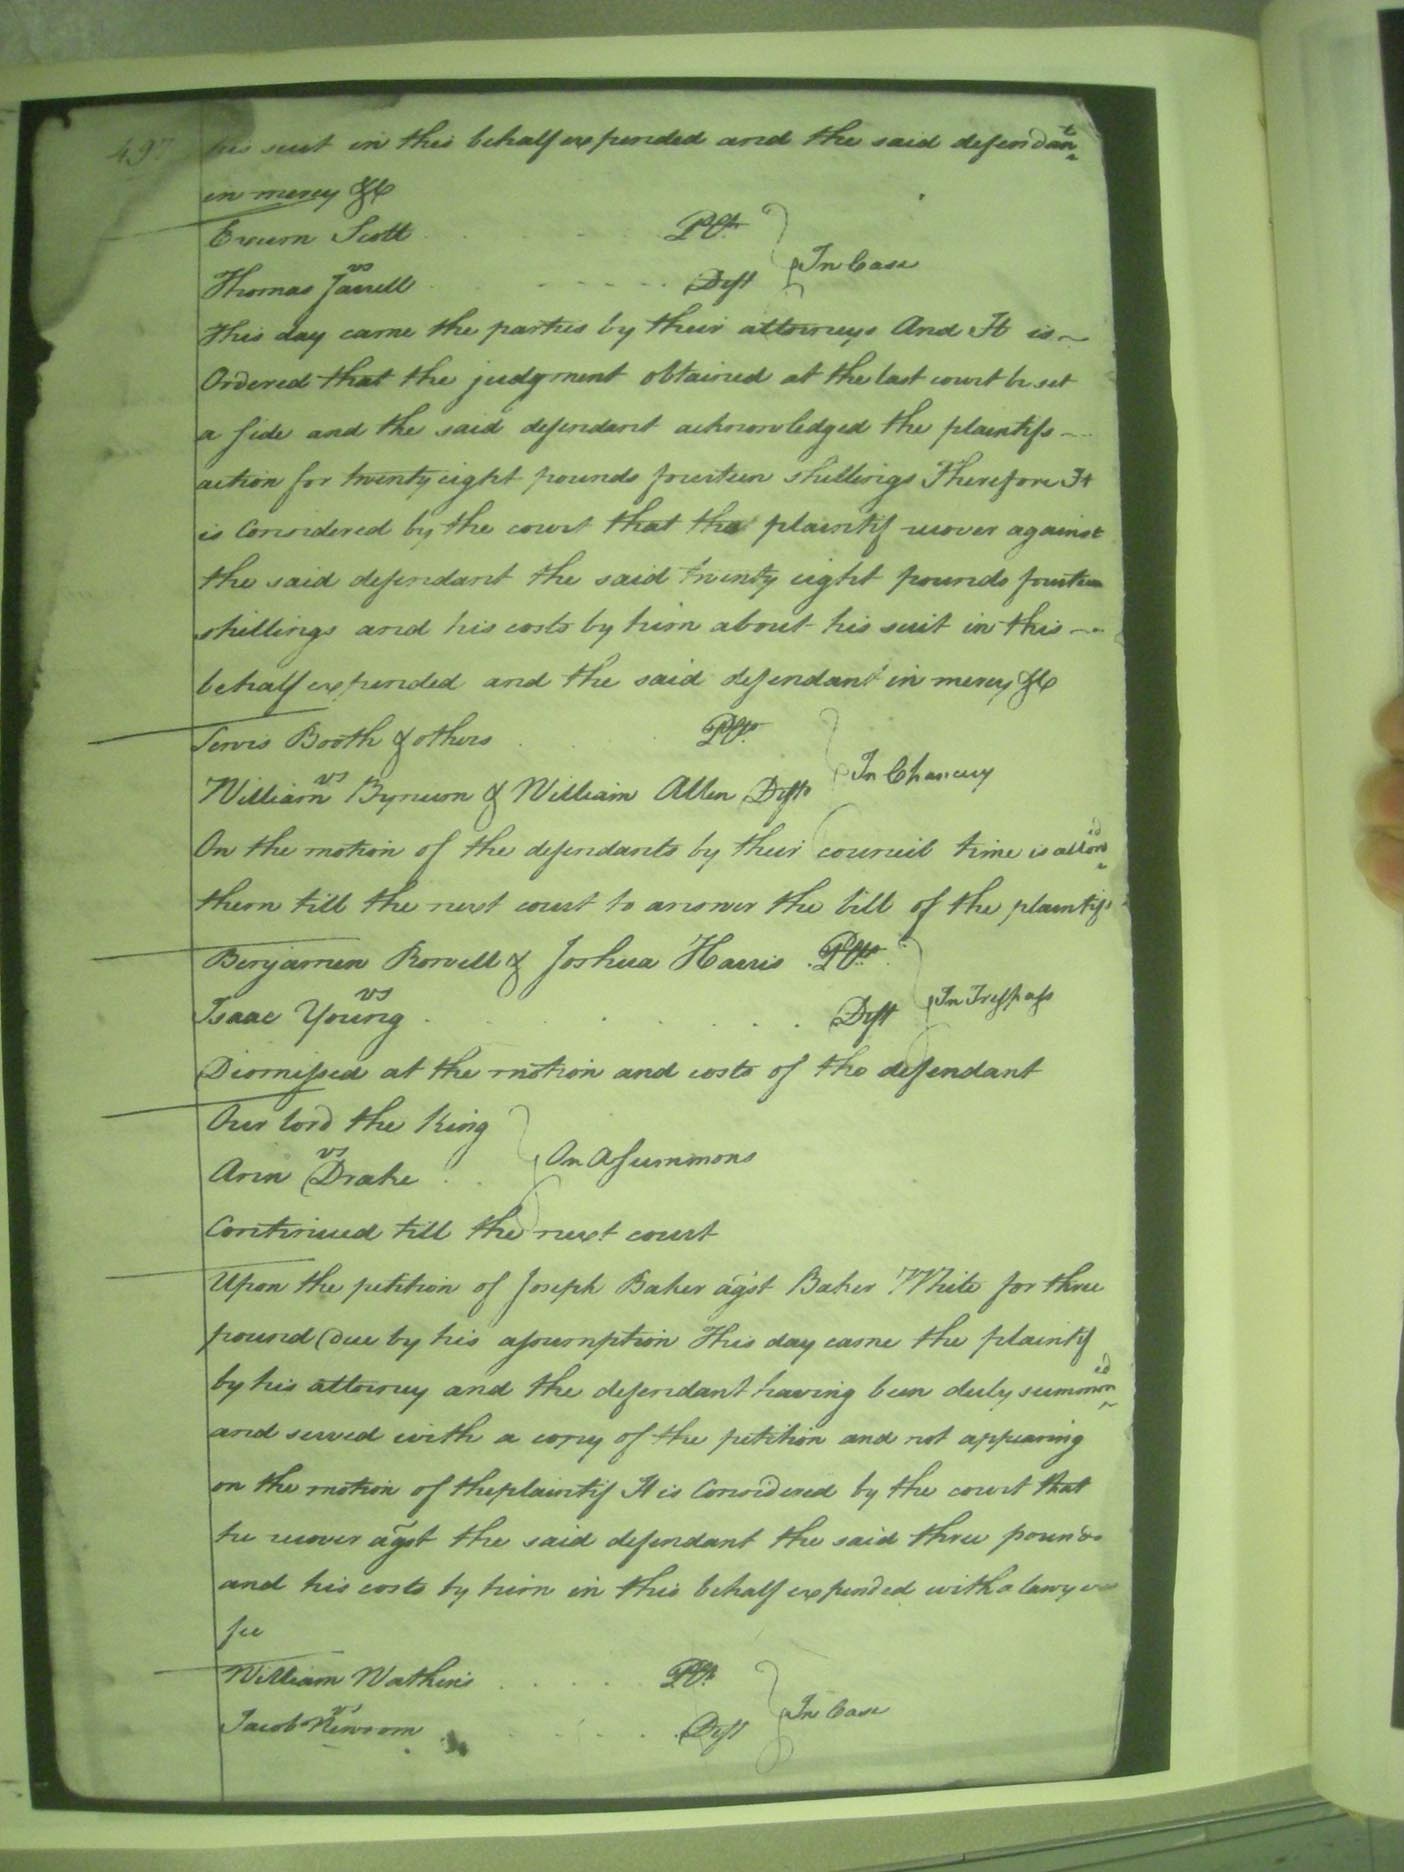 497
his suit in this behalf expended and the said defendant
in mercy &c
Exum Scott Plt
vs In Case
Thomas Jarrell Deft
This day came the parties by their attorneys And It is
Ordered that the judgment obtained at the last court be set
a side and the said defendant acknowledged the plaintifs
action for twenty eight pounds fourteen shillings Therefore It
is Considered by the court that the plaintif recover against
the said defendant the said twenty eight pounds fourteen
shillings and his costs by him about his suit in this
behalf expended and the said defendant in mercy &c
Booth & others Plts
vs In Chancery
William Bynum & William Allen Defts
On the motion of the defendants by their council time is allowed
them till the next court to answer the bill of the plaintifs
Benjamin Rowell & Joshua Harris Plts
vs In Tresspass
Isaac Young Deft
Dismissed at the motion and costs of the defendant
Our lord the King
vs On A Summons
Ann Drake
Continued till the next court
Upon the petition of Joseph Baker agst Baker White for three
pound due by his assumption This day came the plaintif
by his attorney and the defendant having been duly summoned
and served with a copy of the petition and not appearing
on the motion of the plaintif It is Considered by the court that
he recover agst the said defendant the said three pounds
and his costs by him in this behalf expended with a lawyers
fee
William Watkins Plt
vs In Case
Jacob Newsom Deft